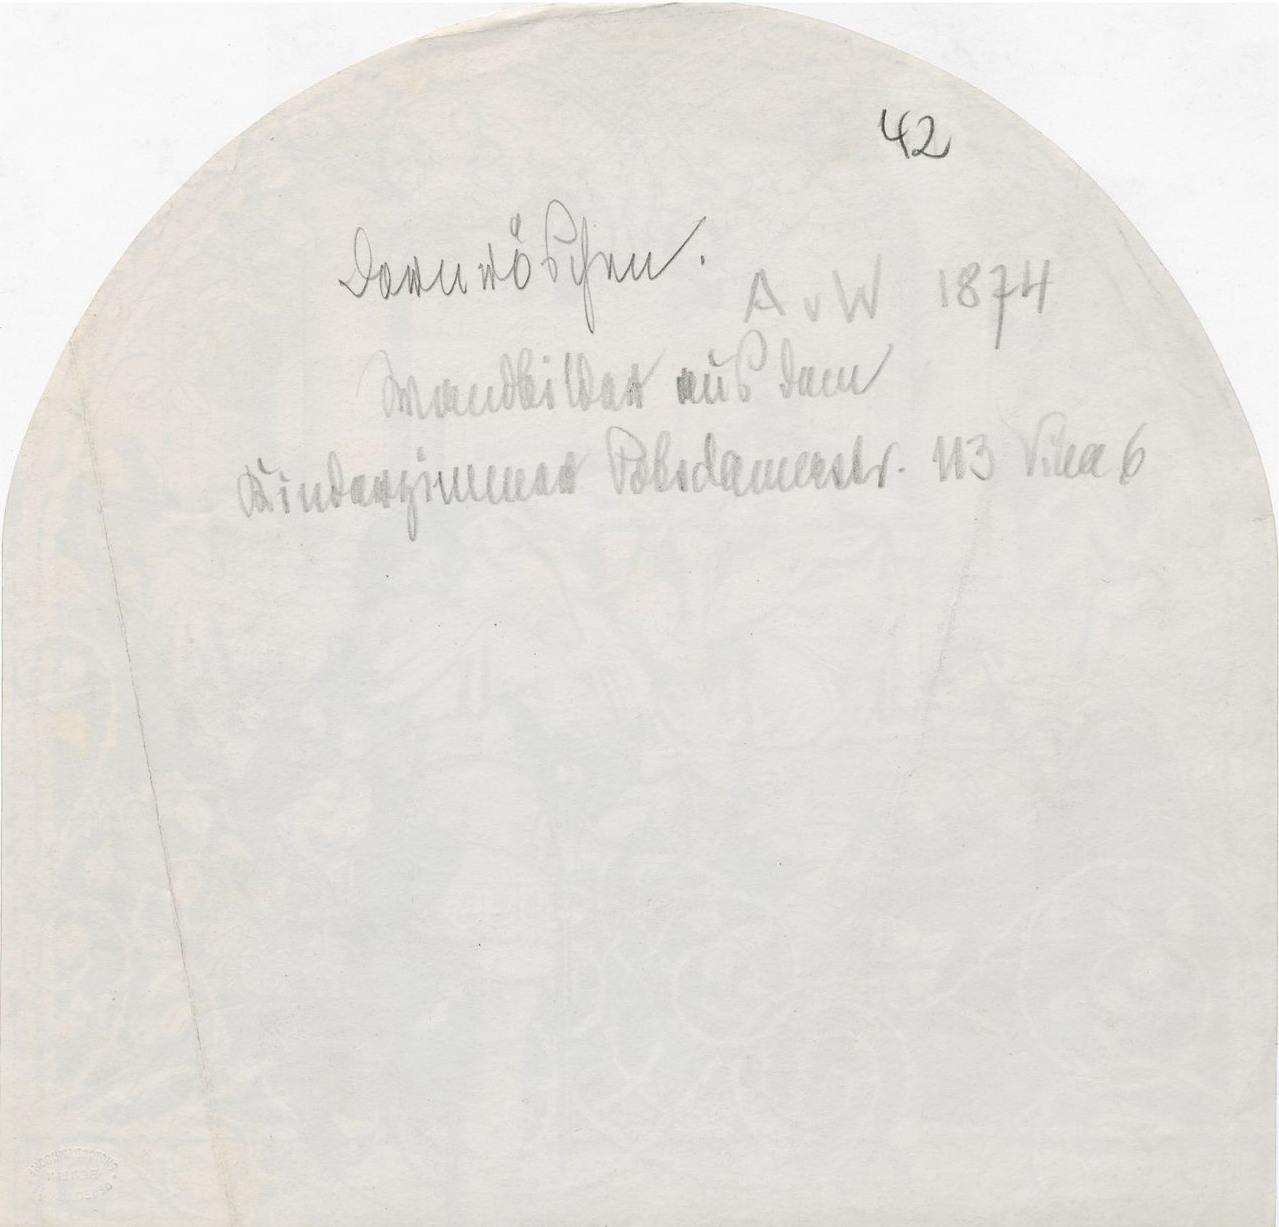 42
Dornröschen.
A v W 1874
Wandbilder aus dem
Kinderzimmer Potsdamerstr. 113 Villa 6